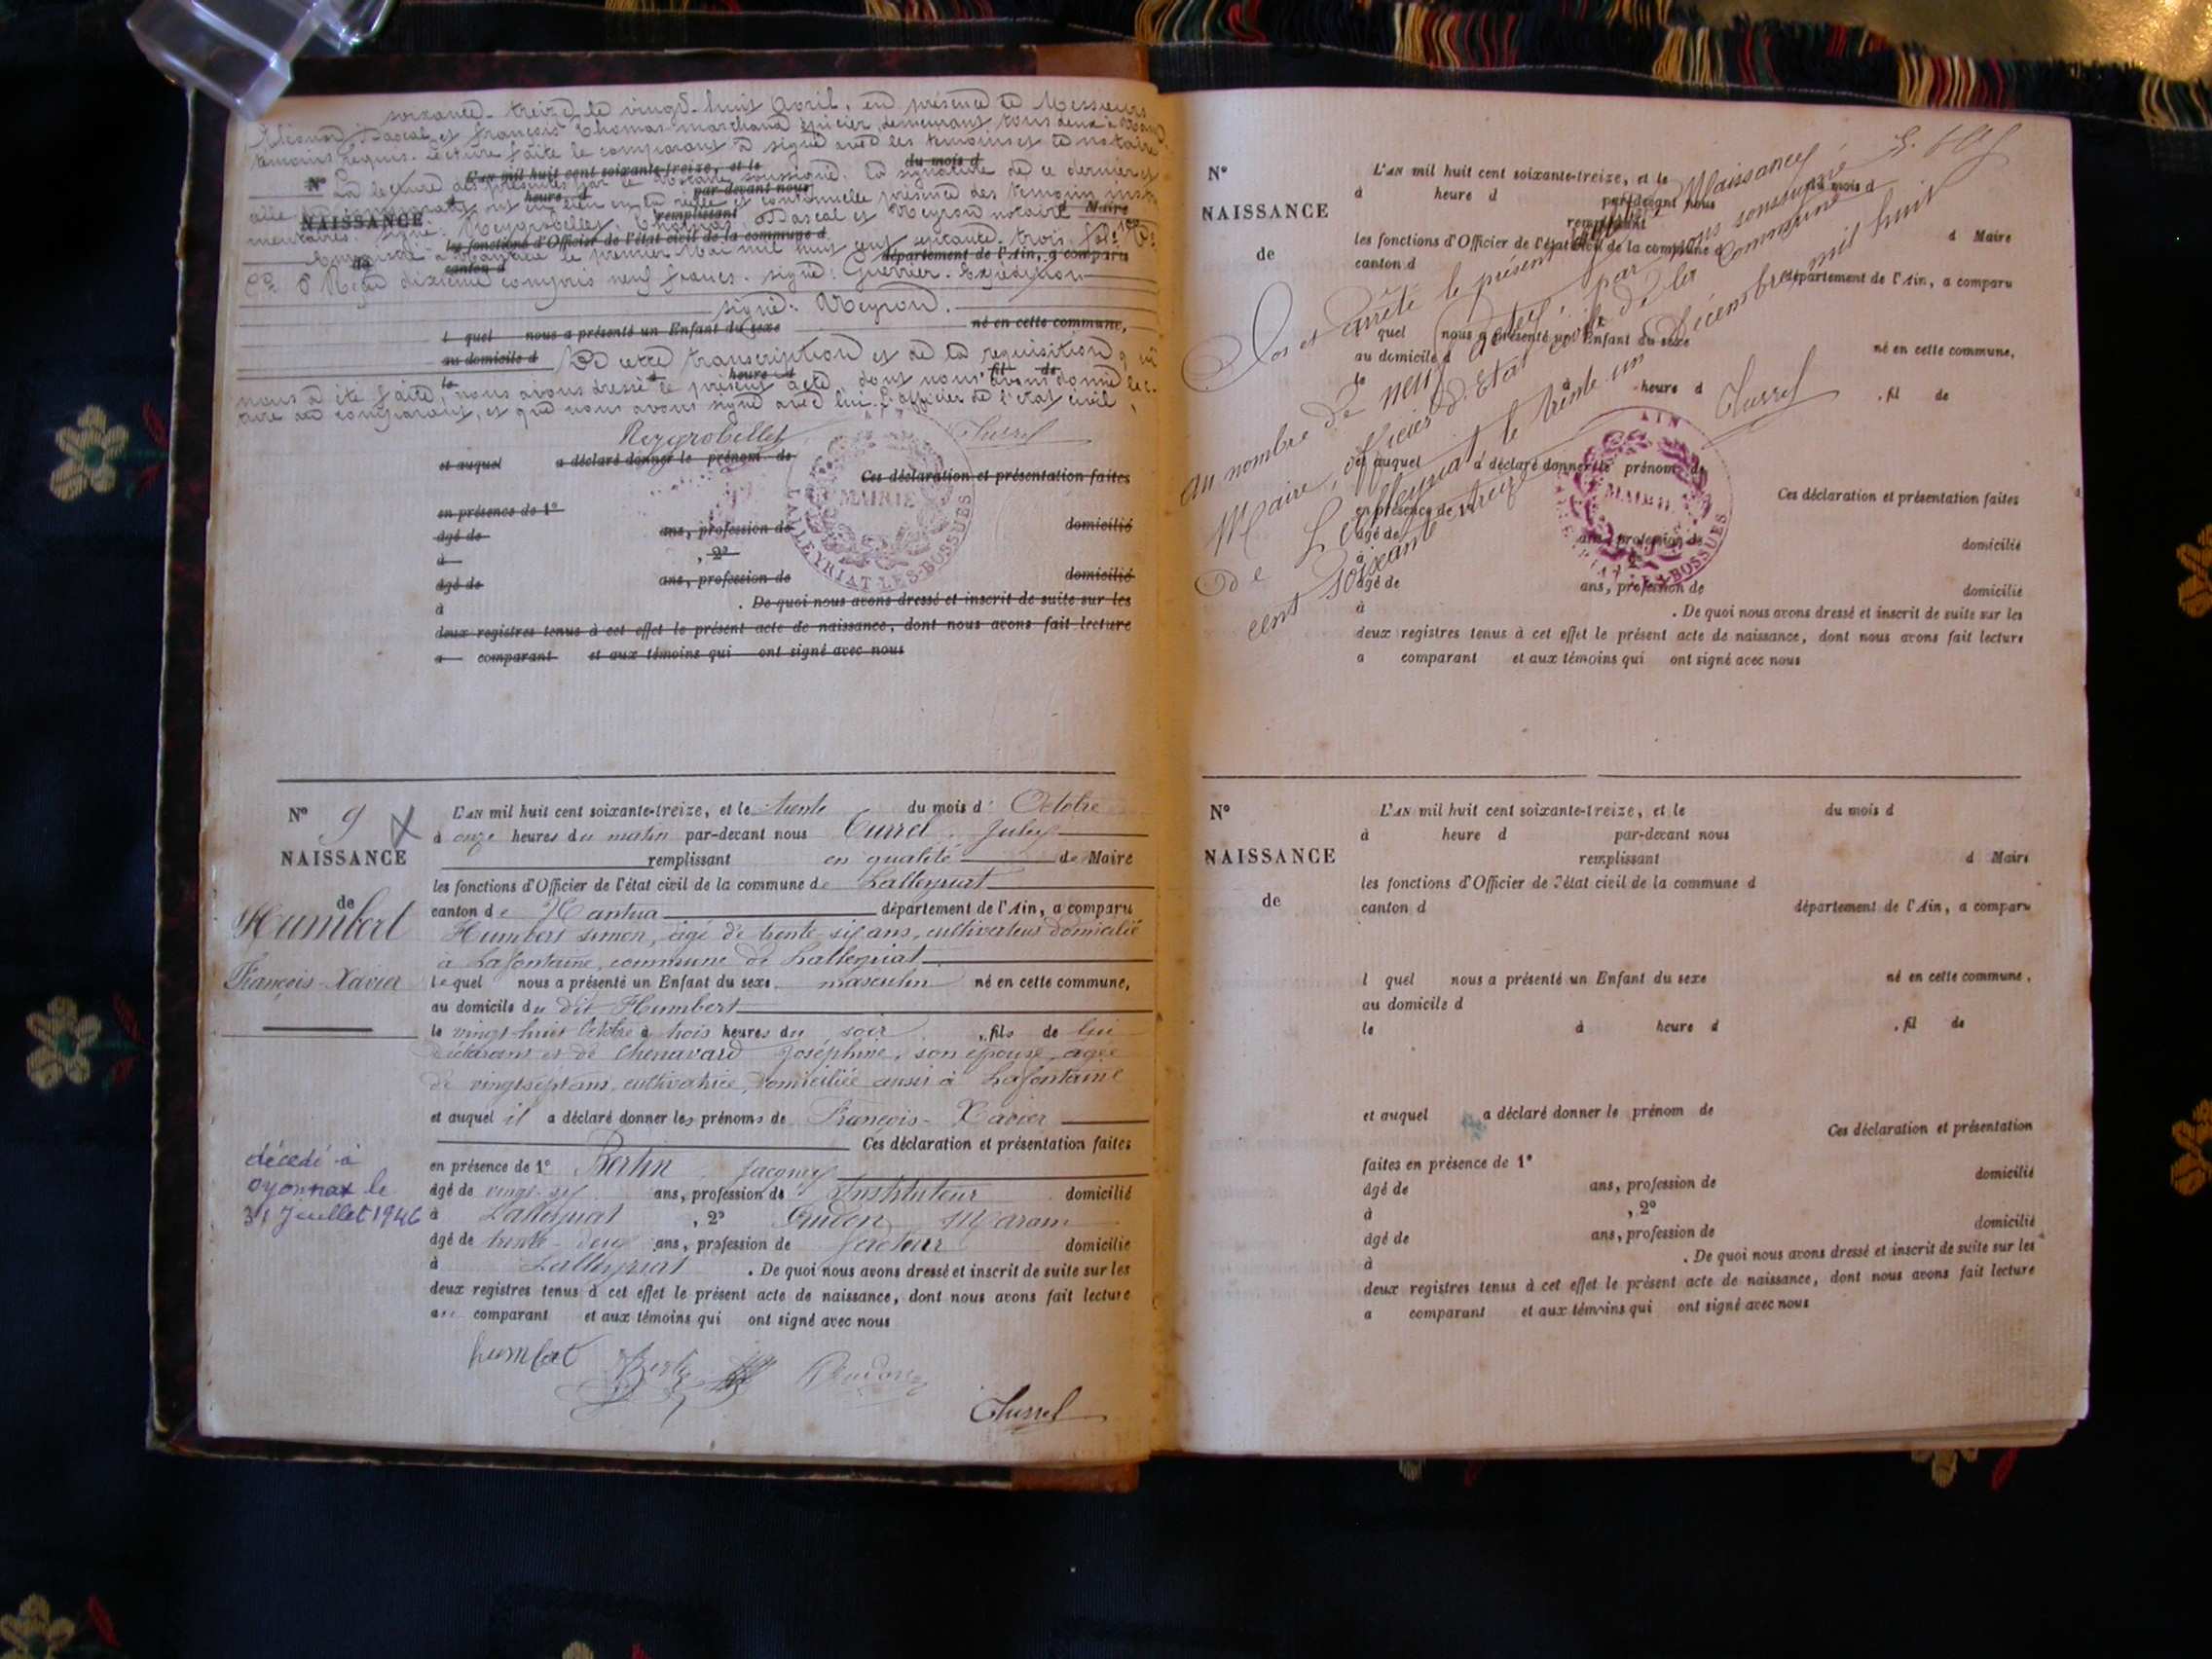 soixante-treize le vingt-huit avril, en présence de Messieurs
Pascal et François Thomas marchand épicier, demeurant tous deux à
témoins requis. Lecture faite le comparant a signé avec les témoins et le notaire
L'AN mil huit cent soixante-treize, et le
du mois d
N° La lecture des présentes par le notaire soussigné. La signature de ce dernier et
heure d
par-devant nous
réelle et continuelle présence des témoins
NAISSANCE
remplissant
d Maire
signé: Reygrobellet. Thomas. Pascal et Meyron notaire
les fonctions d'Officier de l'état civil de la commune d
de
le premier Mai mil huit cent soixante-trois
canton d
département de l'Ain, a comparu
dixième compris neuf francs. signé: Guerrier. Expédition
signé: Meyron.
l quel nous a présenté un Enfant du sexe
né en cette commune,
au domicile d
De cette transcription et de la requisition qui
le
heure d
fil de
nous a été faite, nous avons dressé le présent acte dont nous avons donné lec-
ture au comparant, et que nous avons signé avec lui. L'officier de l'état civil,
Reygrobellet
Curret
et auquel a déclaré donner le prénom de
Ces déclaration et présentation faites
MAIRIE
LALLEYRIAT LES-BOSSUES
en présence de 1°
âgé de ans, profession de domicilié
à , 2°
âgé de ans, profession de domicilié
à . De quoi nous avons dressé et inscrit de suite sur les
deux registres tenus à cet effet le présent acte de naissance, dont nous avons fait lecture
a comparant et aux témoins qui ont signé avec nous
N° 9
NAISSANCE
de
Humbert
François-Xavier
décédé à
oyonnax le
31 Juillet 1946
L'AN mil huit cent soixante-treize, et le trente du mois d' Octobre
à onze heures du matin par-devant nous Curret Jules
remplissant en qualité de Maire
les fonctions d'Officier de l'état civil de la commune de Lalleyriat
canton de Nantua département de l'Ain, a comparu
Humbert Simon, agé de trente-six ans, cultivateur domicilié
à Lafontaine, commune de Lalleyriat
lequel nous a présenté un Enfant du sexe masculin né en cette commune,
au domicile du dit Humbert
le vingt-huit Octobre à trois heures du soir , fils de lui
déclarant et de Chenavard Joséphine, son épouse, agée
de vingt sept ans, cultivatrice, domiciliée aussi à Lafontaine
et auquel il a déclaré donner les prénoms de François-Xavier
Ces déclaration et présentation faites
en présence de 1° Bertin Jacques
âgé de vingt-six ans, profession de Instituteur domicilié
à Lalleyriat , 2°
âgé de trente-deux ans, profession de facteur domicilié
à Lalleyriat . De quoi nous avons dressé et inscrit de suite sur les
deux registres tenus à cet effet le présent acte de naissance, dont nous avons fait lecture
au comparant et aux témoins qui ont signé avec nous
humbert
Curret
N°
NAISSANCE
de
L'AN mil huit cent soixante-treize, et le du mois d
à heure d par-devant nous
remplissant
les fonctions d'Officier de l'état civil de la commune d
d Maire
canton d département de l'Ain, a comparu
quel nous a présenté un Enfant du sexe né en cette commune,
au domicile d
le à heure d , fil de
et auquel a déclaré donner le prénom de
Ces déclaration et présentation faites
en présence de 1°
âgé de ans, profession de domicilié
à , 2°
âgé de ans, profession de domicilié
à . De quoi nous avons dressé et inscrit de suite sur les
deux registres tenus à cet effet le présent acte de naissance, dont nous avons fait lecture
a comparant et aux témoins qui ont signé avec nous
Clos et arrêté le présent Naissances
au nombre de neuf actes, par nous soussigné
Maire, officier d'Etat civil de la Commune
de Lalleyriat le trente un Décembre mil huit
cent soixante treize
Curret
AIN
MAIRIE
BOSSUES
N°
NAISSANCE
de
L'AN mil huit cent soixante-treize, et le du mois d
à heure d par-devant nous
remplissant d Maire
les fonctions d'Officier de l'état civil de la commune d
canton d département de l'Ain, a comparu
l quel nous a présenté un Enfant du sexe né en cette commune,
au domicile d
le à heure d , fil de
et auquel a déclaré donner le prénom de
Ces déclaration et présentation
faites en présence de 1°
âgé de ans, profession de domicilié
à , 2°
âgé de ans, profession de domicilié
à . De quoi nous avons dressé et inscrit de suite sur les
deux registres tenus à cet effet le présent acte de naissance, dont nous avons fait lecture
a comparant et aux témoins qui ont signé avec nous